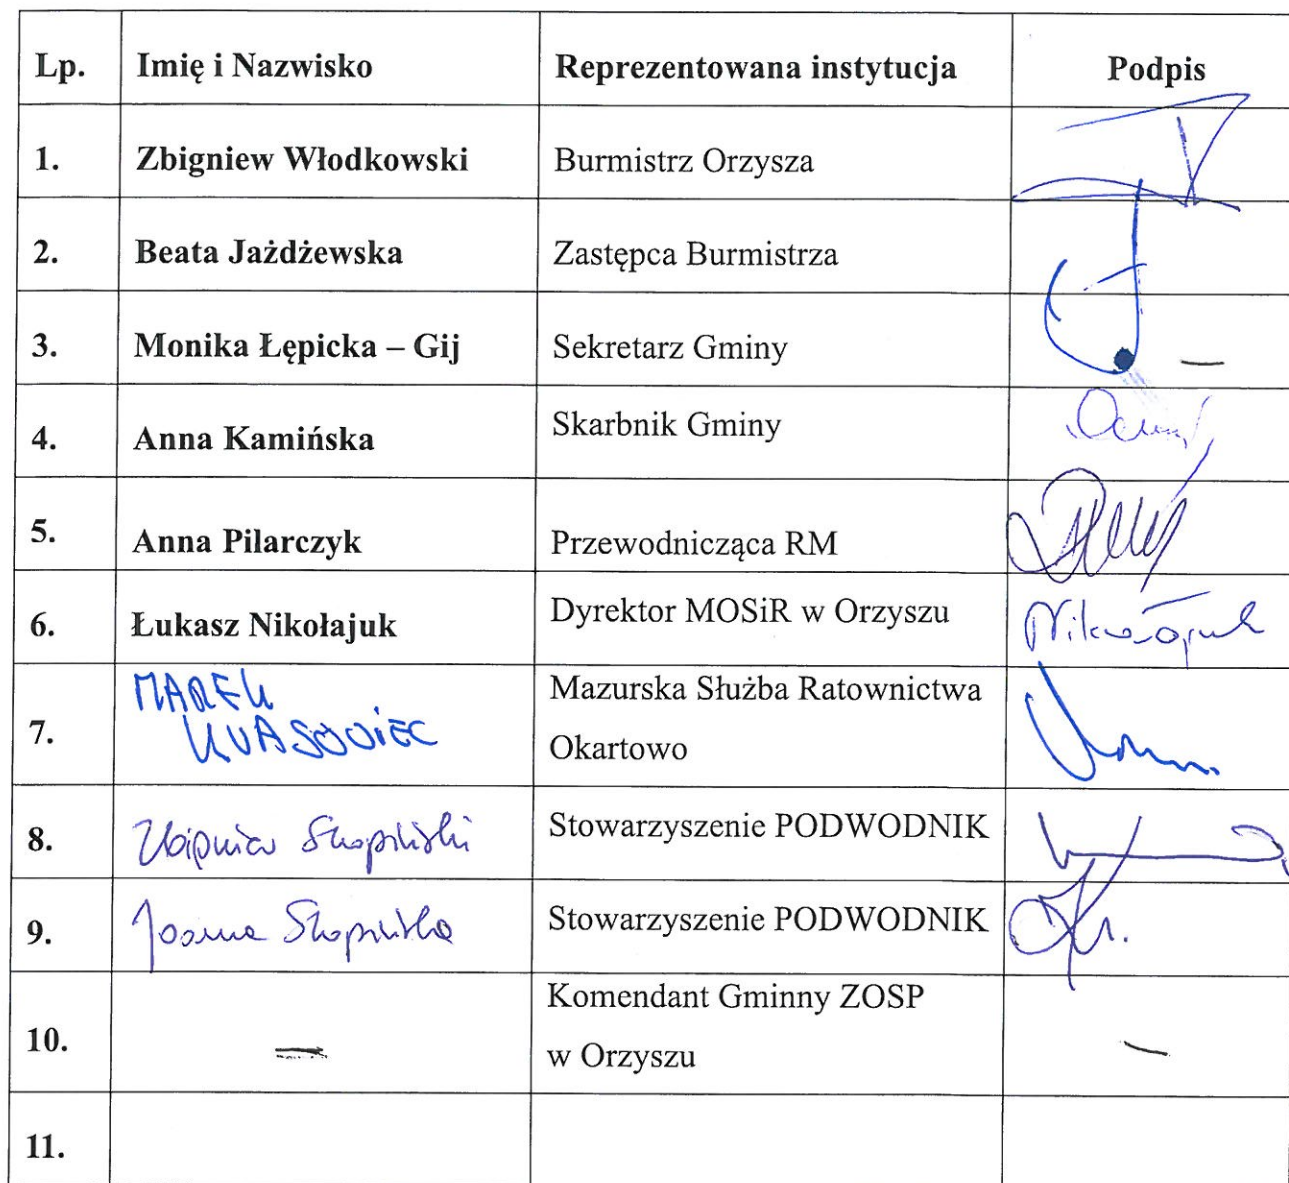 Lp. Imię i Nazwisko Reprezentowana instytucja Podpis
1. Zbigniew Włodkowski Burmistrz Orzysza
2. Beata Jażdżewska Zastępca Burmistrza
3. Monika Łępicka – Gij Sekretarz Gminy —
4. Anna Kamińska Skarbnik Gminy
5. Anna Pilarczyk Przewodnicząca RM
6. Łukasz Nikołajuk Dyrektor MOSiR w Orzyszu Nikołajuk
7. MAREK Mazurska Służba Ratownictwa
Okartowo
8. Zbigniew Skopiński Stowarzyszenie PODWODNIK
9. Joanna Skopińska Stowarzyszenie PODWODNIK
10. — Komendant Gminny ZOSP —
w Orzyszu
11.